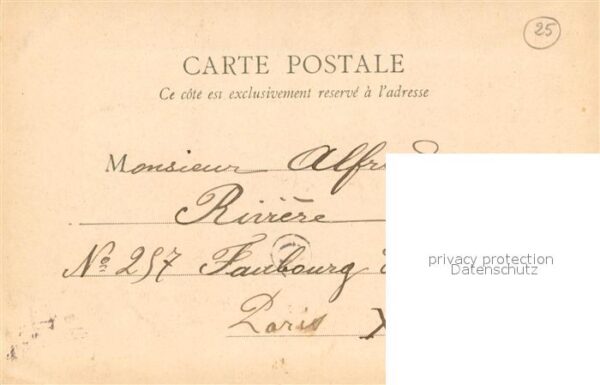 25
CARTE POSTALE
Ce côté est exclusivement reservé à l'adresse
Monsieur
Rivière
No 257 Faubourg
Paris X
privacy protection
Datenschutz